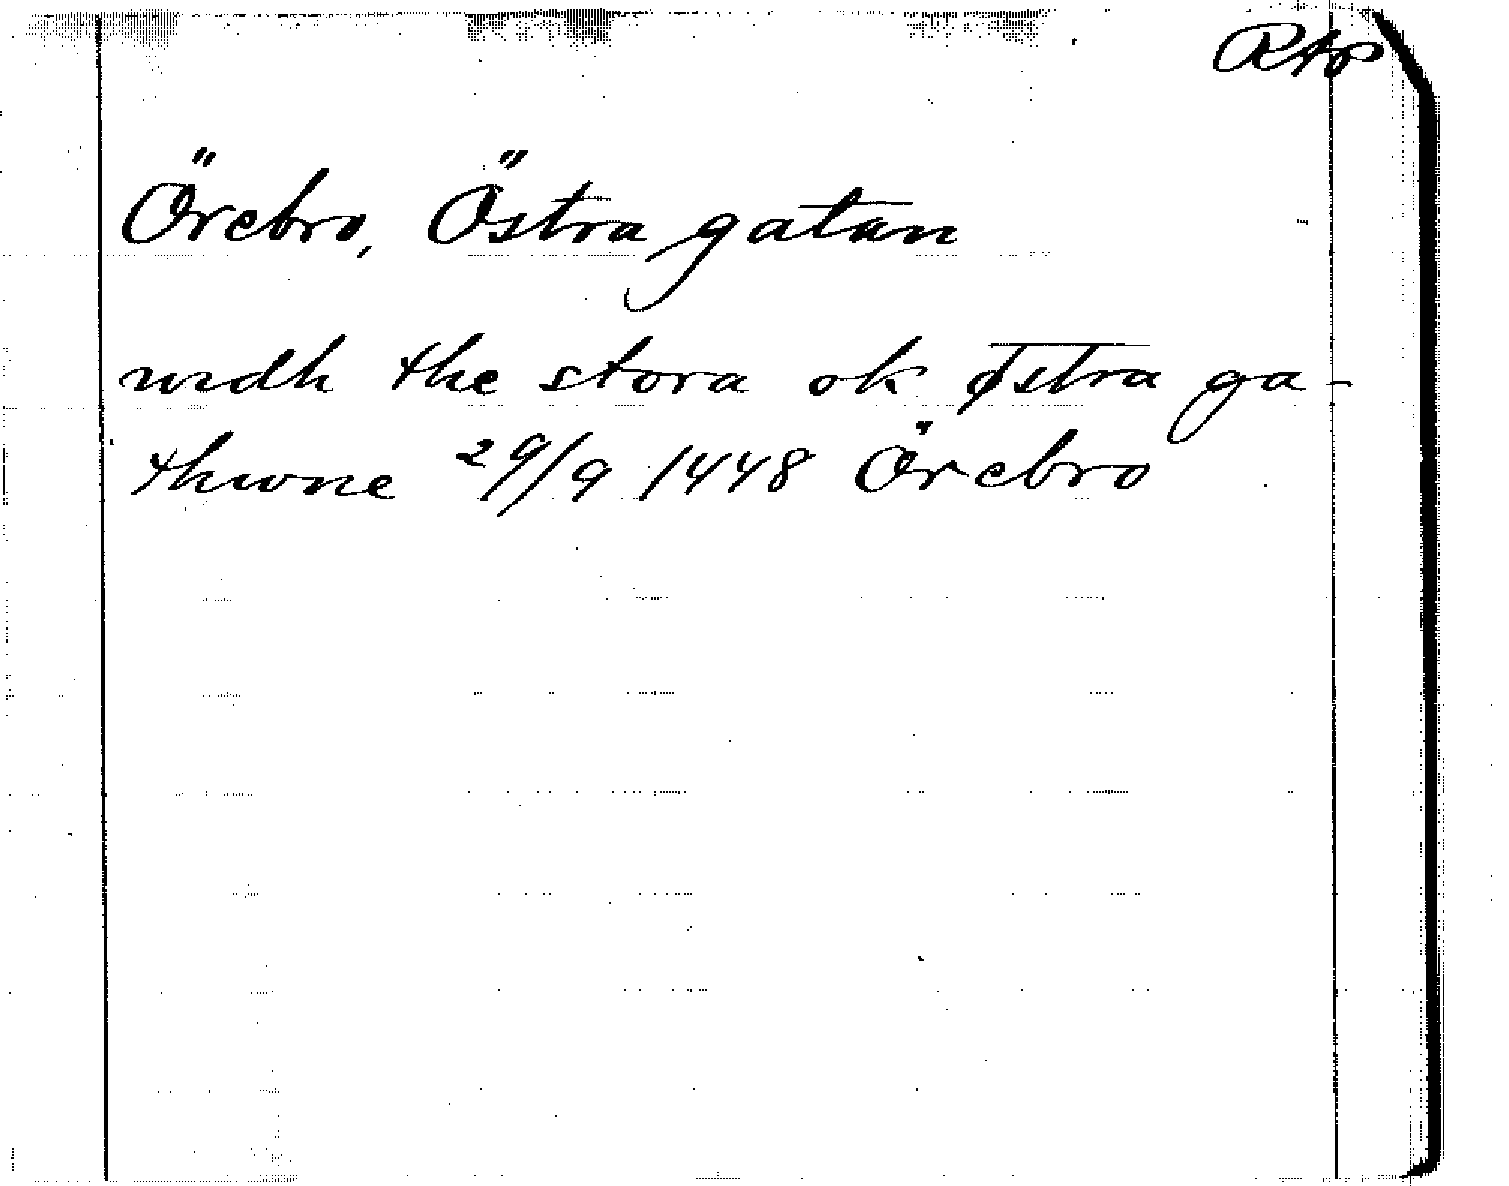 Rap
Örebro, Östra gatan
widh the stora ok østra ga-
thwne 29/9 1448 Örebro